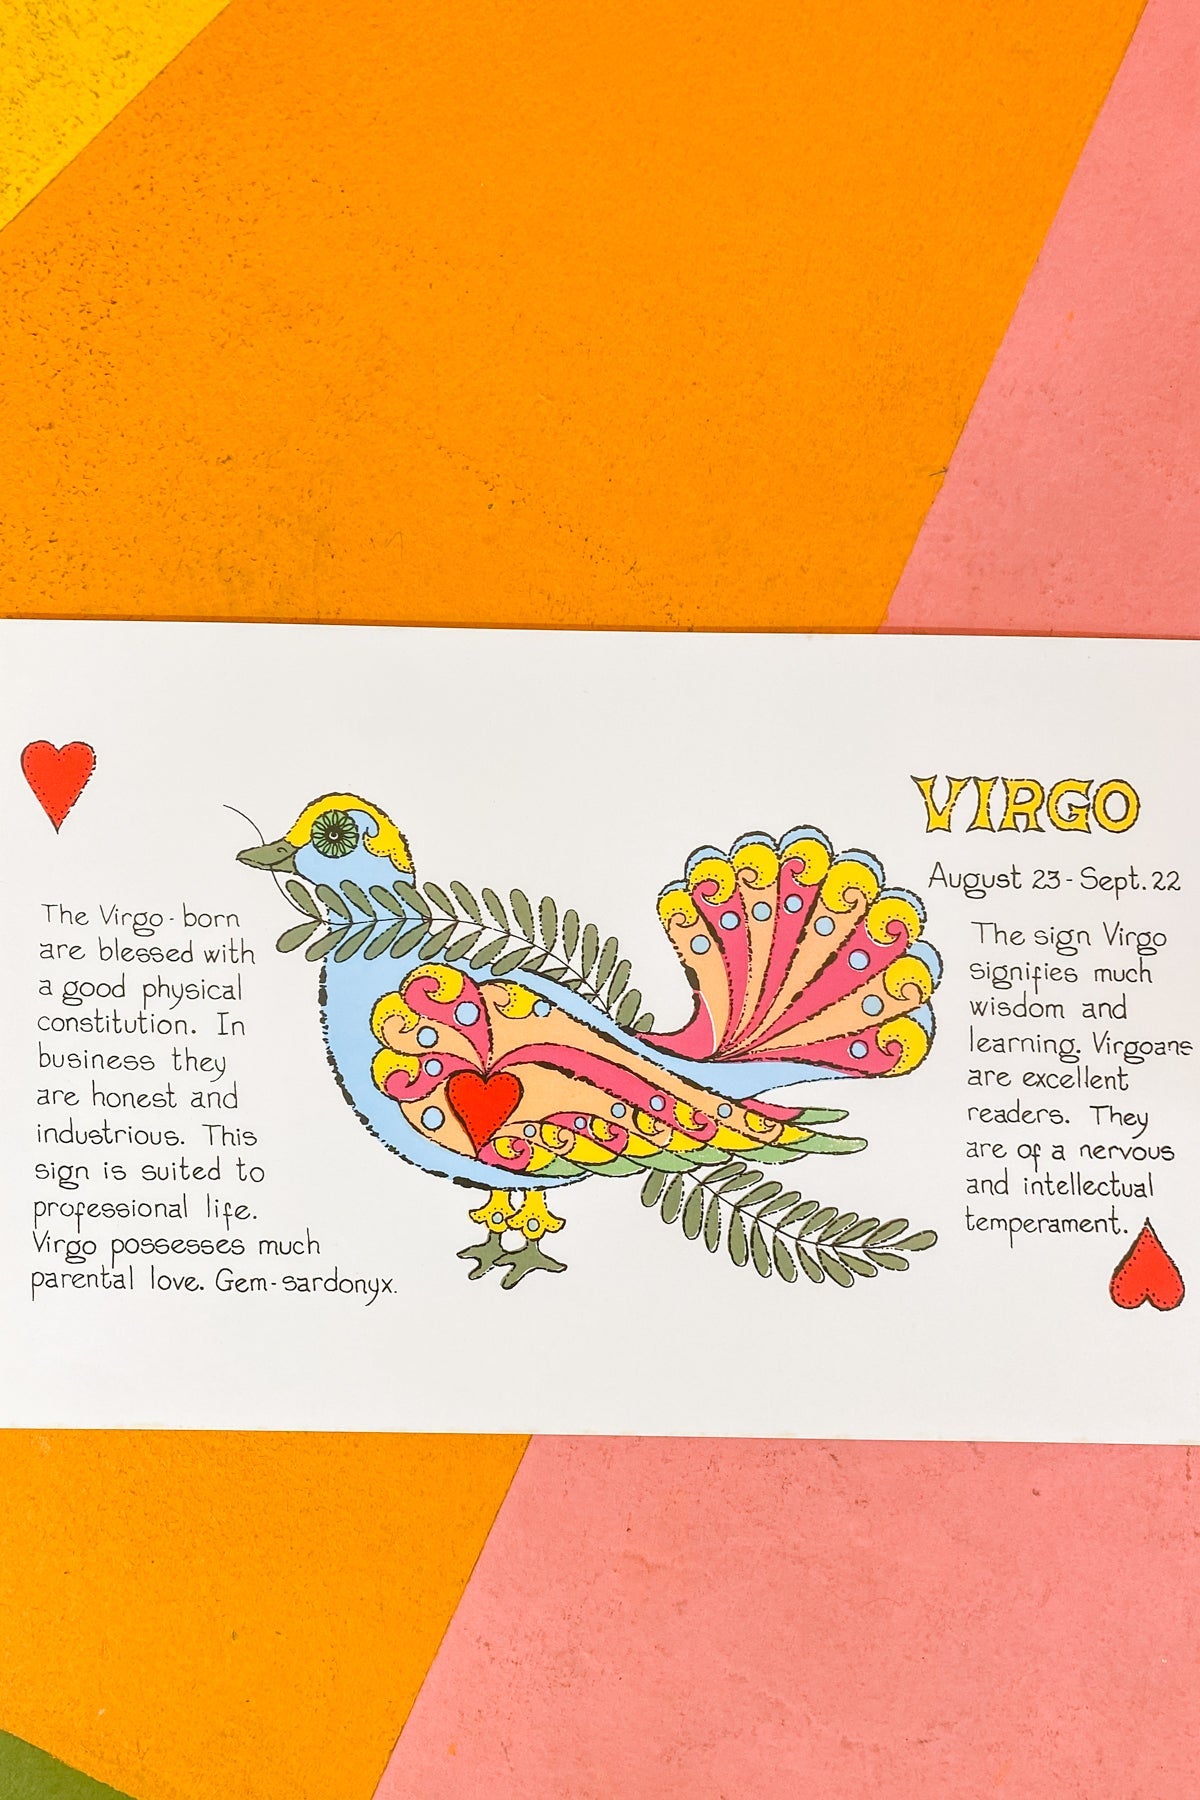 The Virgo-born
are blessed with
a good physical
constitution. In
business they
are honest and
industrious. This
sign is suited to
professional life.
Virgo possesses much
parental love. Gem-sardonyx.
VIRGO
August 23 - Sept. 22
The sign Virgo
signifies much
wisdom and
learning. Virgoans
are excellent
readers. They
are of a nervous
and intellectual
temperament.